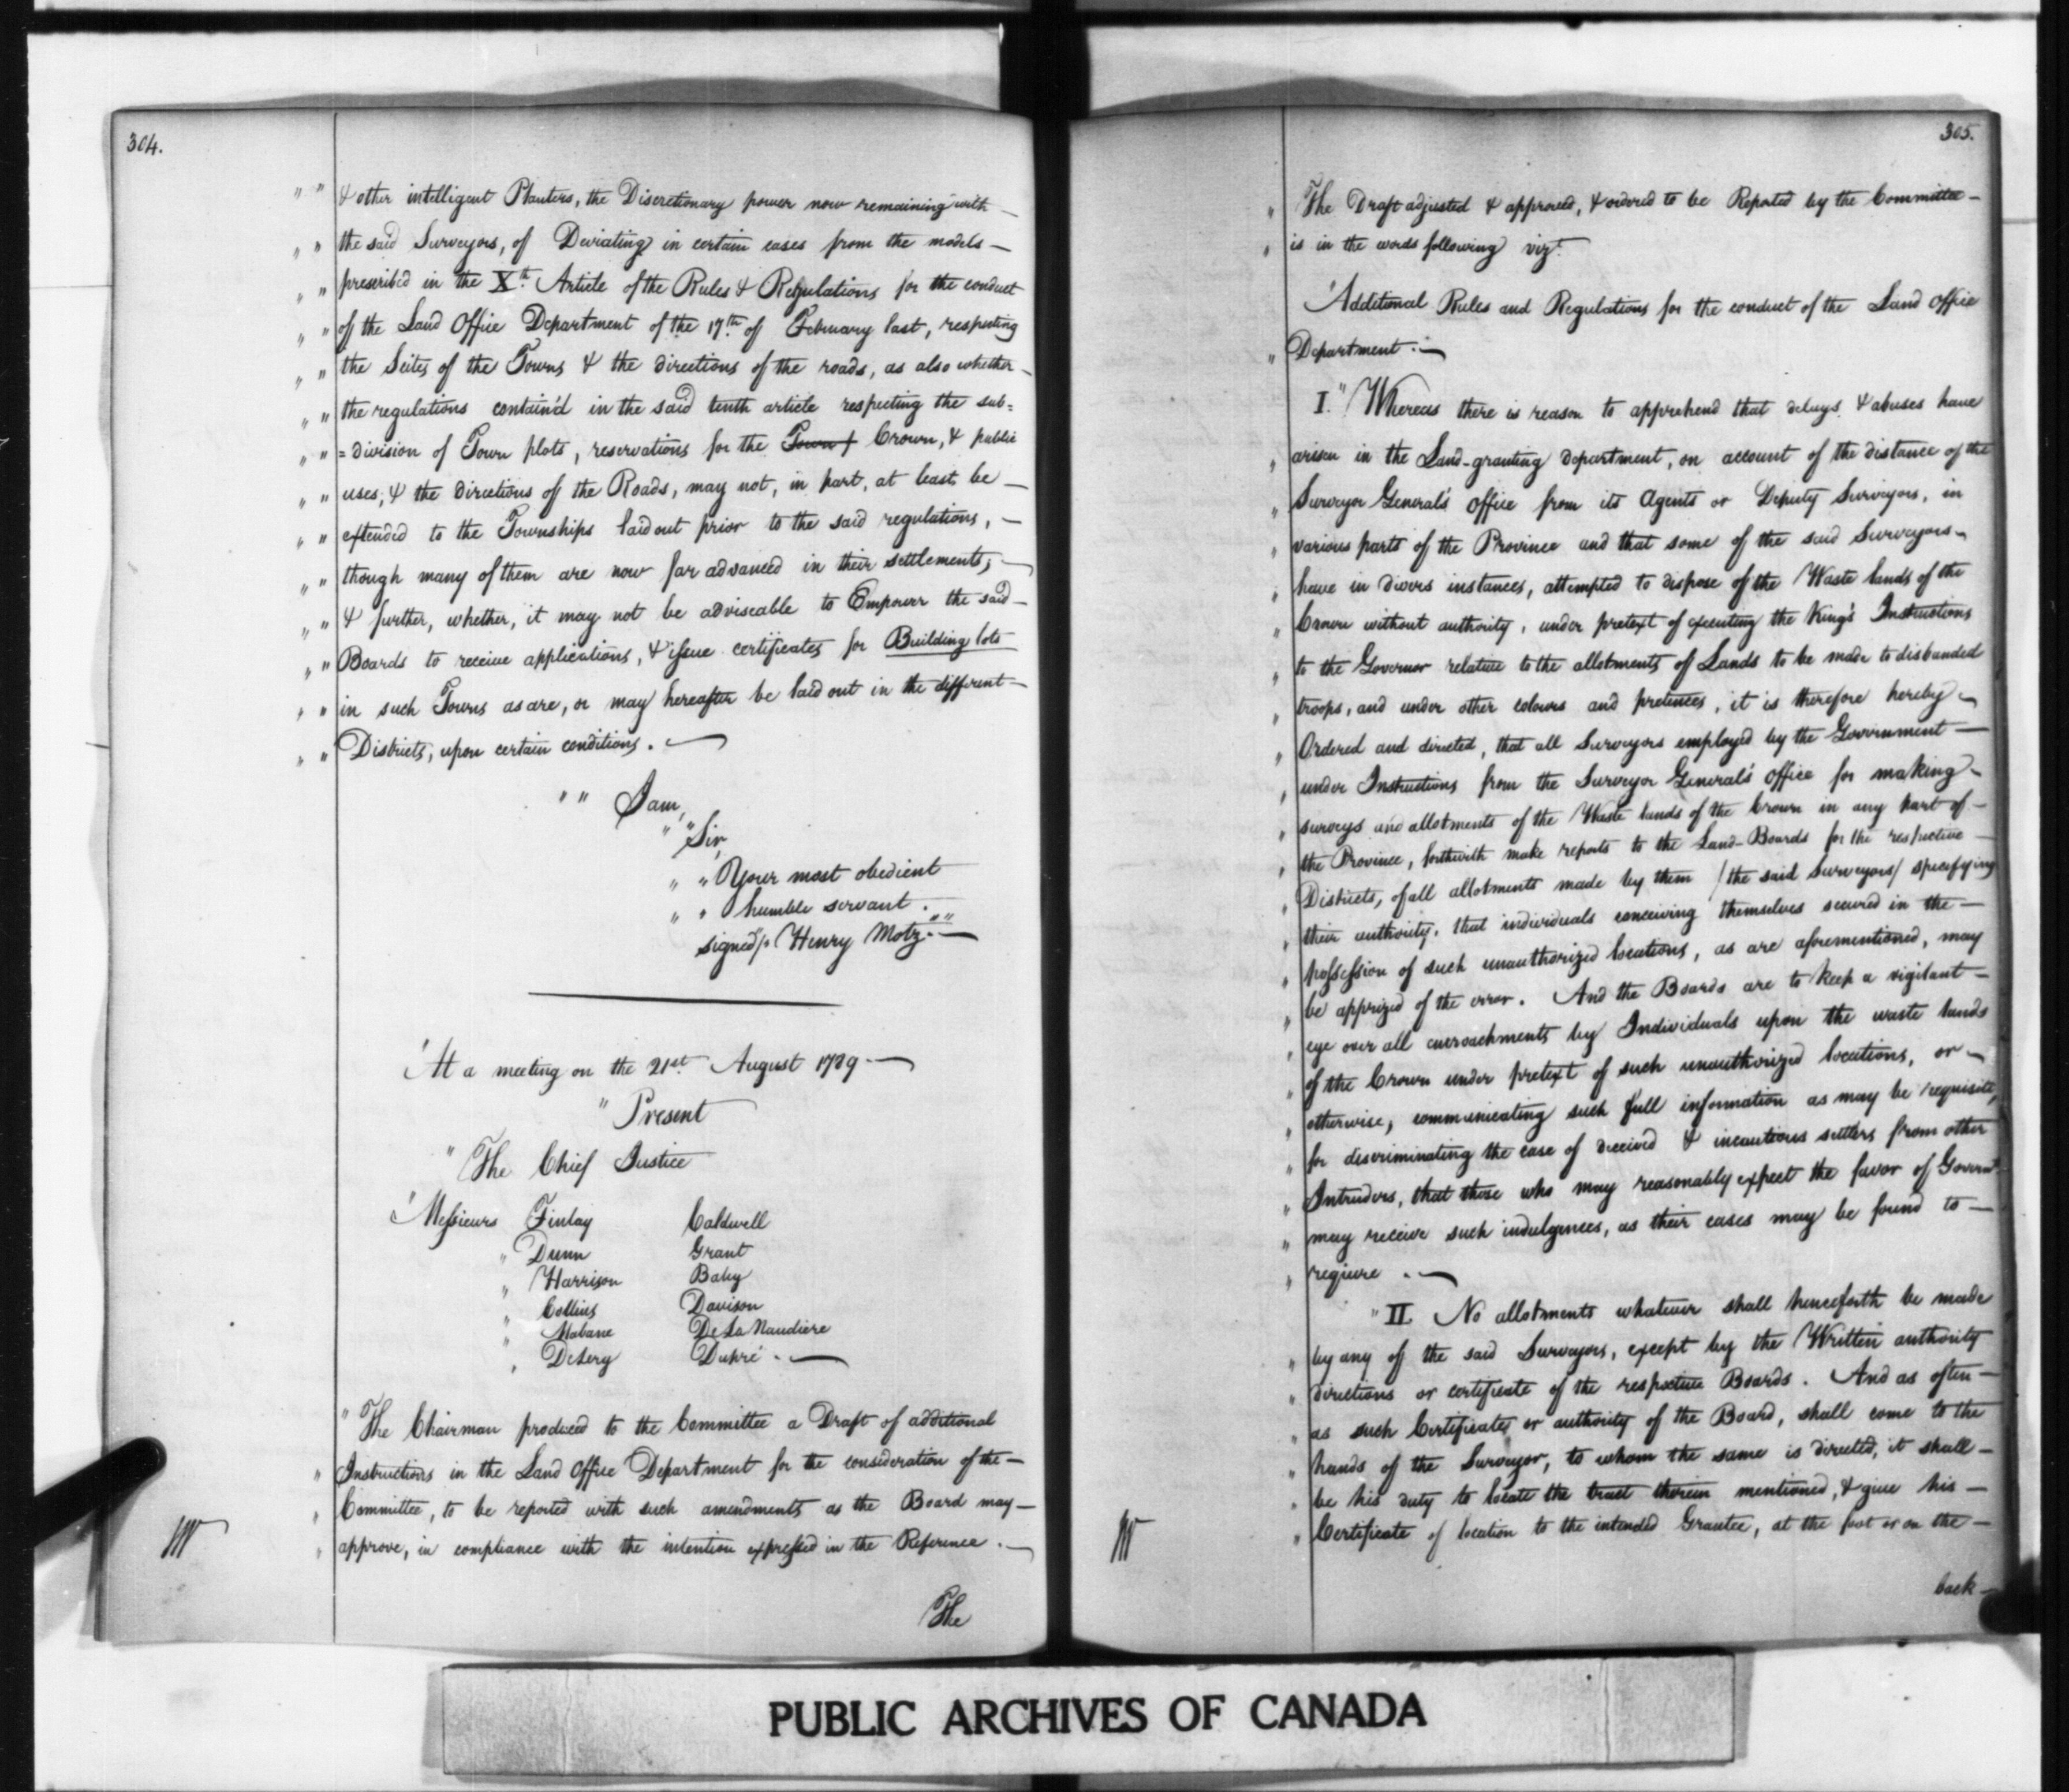 304.
" " & other intelligent Planters, the Discretionary power now remaining with —
" " the said Surveyors, of Deviating in certain cases from the models —
" " prescribed in the Xth. Article of the Rules & Regulations for the conduct
" " of the Land Office Department of the 17th of February last, respecting
" " the Scites of the Towns & the directions of the roads, as also whether —
" " the regulations contain'd in the said tenth article respecting the sub=
" " =division of Town plots, reservations for the Town Crown, & public
" " uses, & the directions of the Roads, may not, in part, at least be —
" " extended to the Townships laid out prior to the said regulations, —
" " though many of them are now far advanced in their settlements; —
" " & further, whether, it may not be adviseable to Empower the said —
" " Boards to receive applications, & issue certificates for Building lots
" " in such Towns as are, or may hereafter be laid out in the different —
" " Districts, upon certain conditions. —
" " I am,
" " Sir,
" " Your most obedient
" " humble servant.
signed/. Henry Motz. " " —
" At a meeting on the 21st August 1789 —
" Present
" The Chief Justice
" Messieurs Finlay Caldwell
" Dunn Grant
" Harrison Baby
" Collins Davison
" Mabane De La Naudiere
" De Lery Dupré. —
" The Chairman produced to the Committee a Draft of additional
" Instructions in the Land Office Department for the consideration of the —
" Committee, to be reported with such amendments as the Board may —
" approve, in compliance with the intention expressed in the Reference. —
The
305.
" The Draft adjusted & approved, & ordered to be Reported by the Committee —
" is in the words following viz.t
" Additional Rules and Regulations for the conduct of the Land Office
" Department. —
I. " Whereas there is reason to apprehend that delays & abuses have
" arisen in the Land-granting department, on account of the distance of the
" Surveyor General's Office from its Agents or Deputy Surveyors, in
" various parts of the Province and that some of the said Surveyors —
" have in divers instances, attempted to dispose of the Waste lands of the
" Crown without authority, under pretext of executing the King's Instructions
" to the Governor relative to the allotments of Lands to be made to disbanded
" troops, and under other colours and pretences, it is therefore hereby —
" Ordered and directed, that all Surveyors employed by the Government —
" under Instructions from the Surveyor General's office for making —
" surveys and allotments of the Waste lands of the Crown in any part of —
" the Province, forthwith make reports to the Land-Boards for the respective —
" Districts, of all allotments made by them / the said Surveyors / specifying
" their authority, that individuals conceiving themselves secured in the —
" possession of such unauthorized locations, as are aforementioned, may
" be apprized of the error. And the Boards are to keep a vigilant —
" eye over all encroachments by Individuals upon the waste lands
" of the Crown under pretext of such unauthorized locations, or —
" otherwise, communicating such full information as may be requisite,
" for discriminating the case of deceived & incautious settlers from other
" Intruders, that those who may reasonably expect the favor of Governt
" may receive such indulgences, as their cases may be found to —
" require. —
" II. No allotments whatever shall henceforth be made
" by any of the said Surveyors, except by the Written authority
" directions or certificate of the respective Boards. And as often —
" as such Certificate or authority of the Board, shall come to the
" hands of the Surveyor, to whom the same is directed, it shall —
" be his duty to locate the tract therein mentioned, & give his —
" Certificate of location to the intended Grantee, at the foot or on the —
back —
PUBLIC ARCHIVES OF CANADA